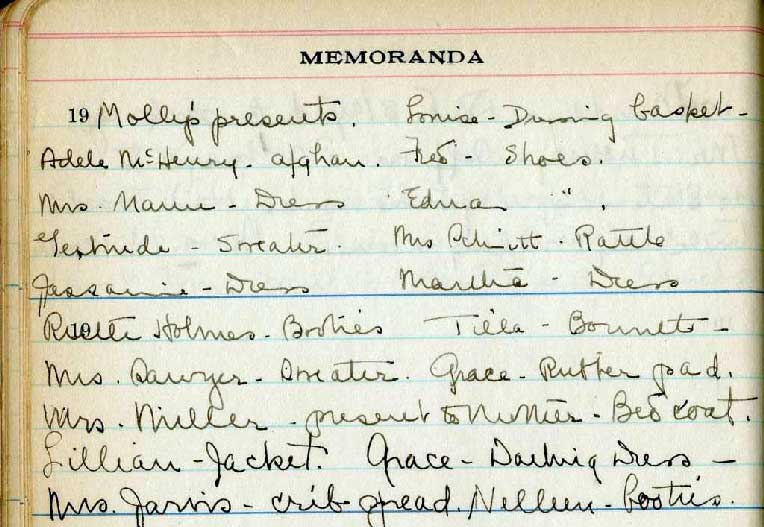 MEMORANDA
19 Molly's presents. Louise - Dressing basket -
Adele McHenry - afghan. Fred - Shoes.
Mrs. - Dress Edna " .
Gertrude - Sweater. Mrs Schmitt - Rattle
- Dress Martha - Dress
Holmes - Booties Tilla - Bonnet -
Mrs. Sawyer - Sweater. Grace - Rubber pad.
Mrs. Miller - present to Mother - Bed coat.
Lillian - Jacket. Grace - Darling Dress -
Mrs. Jarvis - crib spread. Nelleen - booties.